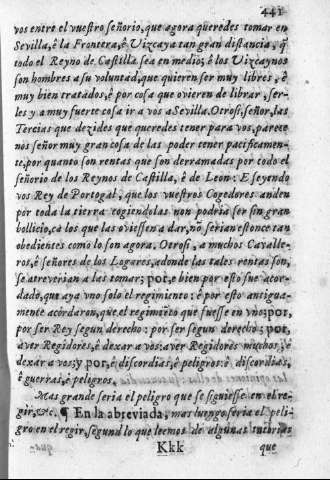 441
vos entre el vuestro señorio, que agora queredes tomar en
Sevilla, è la Frontera, è Vizcaya tan gran distancia, q̃
todo el Reyno de Castilla sea en medio; è los Vizcaynos
son hombres a su voluntad, que quieren ser muy libres, è
muy bien tratados, è por cosa que ovieren de librar, ser-
les y a muy fuerte cosa ir a vos a Sevilla. Otrosi, señor, las
Tercias que dezides que queredes tener para vos, parece
nos señor muy gran cosa de las poder tener pacificamen-
te, por quanto son rentas que son derramadas por todo el
señorio de los Reynos de Castilla, è de Leon: E seyendo
vos Rey de Portogal, que los vuestros Cogedores anden
por toda la tierra cogiendolas non podria ser sin gran
bollicio, ca los que las oviessen a dar, no serian estonce tan
obedientes como lo son agora. Otrosi, a muchos Cavalle-
ros, è señores de los Logares, adonde las tales rentas son,
se atreverian a las tomar; por, e bien por esto fue acor-
dado, que aya vno solo el regimiento: è por esto antigua-
mente acordaron, que el regimiẽto que fuesse en vno; por,
por ser Rey segun derecho: por ser segun derecho; por,
aver Regidores, è dexar a vos: aver Regidores muchos, è
dexar a vos; y por, è discordias, è peligros: è discordias,
è guerras, è peligros.
Mas grande seria el peligro que se siguiesse en el re-
gir, &c. ¶ En la abreviada, mas luengo seria el peli-
gro en el regir, segund lo que leemos de algunas tutorias
Kkk que